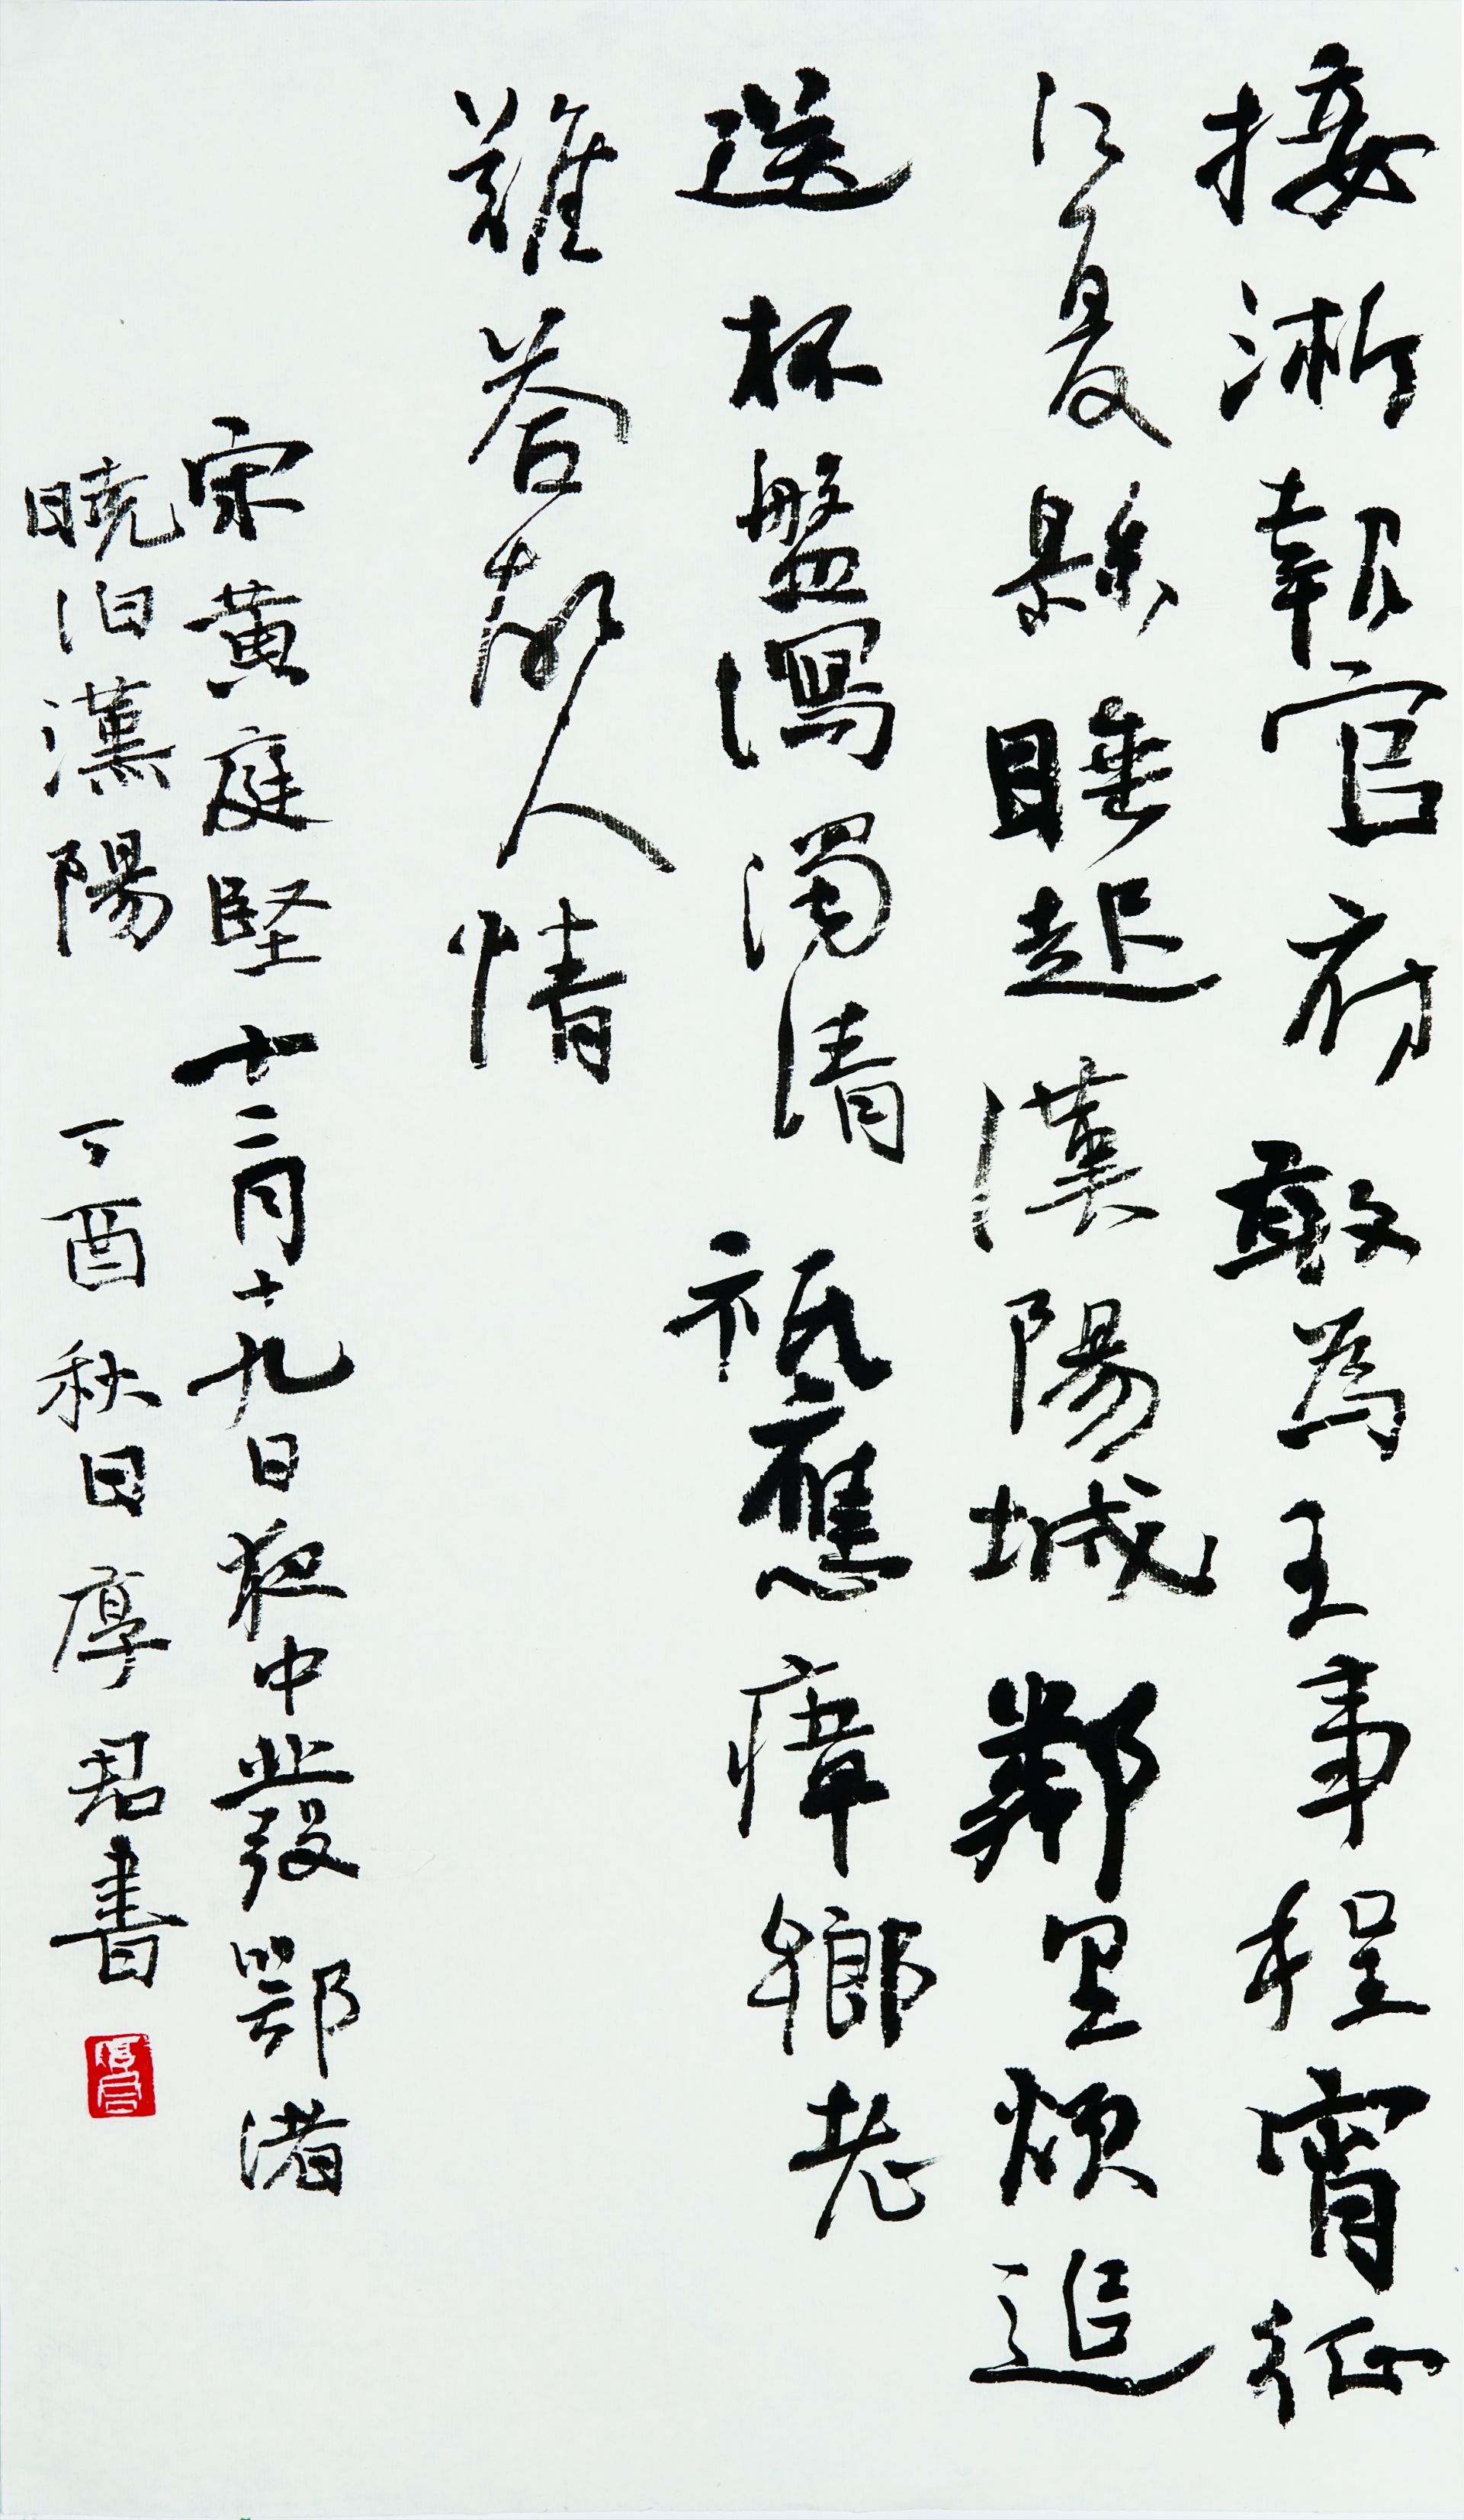 接淅報官府敢為王事程宵征
江夏縣睡起漢陽城鄰里煩追
送杯盤瀉濁清祗應瘴鄉老
難答故人情
宋黃庭堅十二月十九日夜中發鄂渚
曉泊漢陽 丁酉秋日厚君書